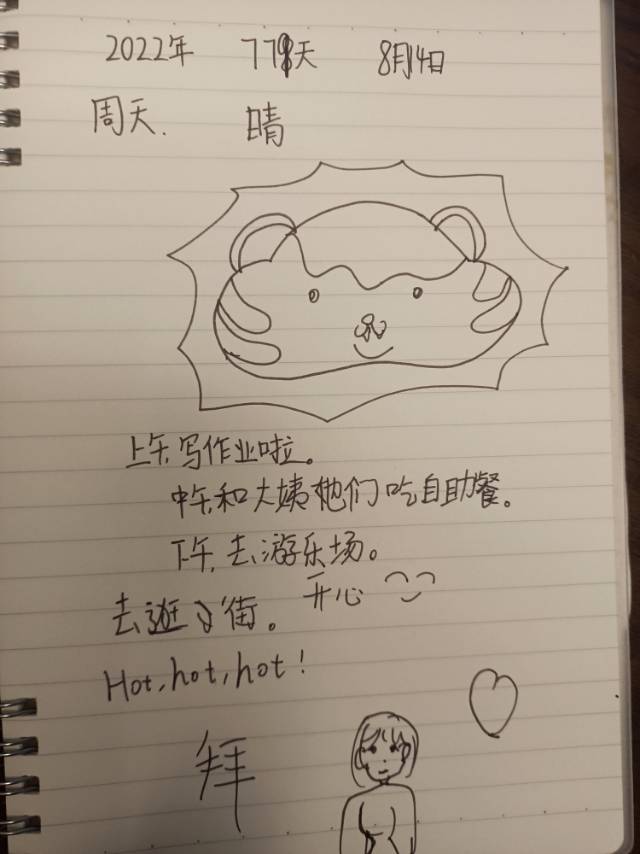 2022年 779天 8月14日
周天. 晴
上午写作业啦。
中午和大姨她们吃自助餐。
下午,去游乐场。
开心
去逛了街。
Hot,hot,hot!
拜